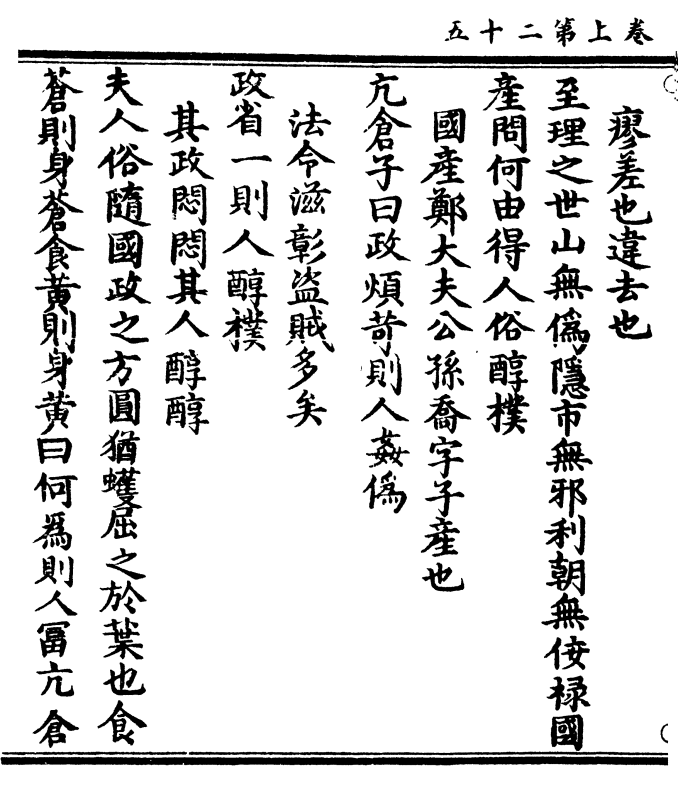 卷上第二十五
廖差也違去也
至理之世山無僞隱市無邪利朝無佞祿國
產問何由得人俗醇樸
國產鄭大夫公孫喬字子產也
亢倉子曰政煩苛則人姦僞
法令滋彰盜賊多矣
政省一則人醇樸
其政悶悶其人醇醇
夫人俗隨國政之方圓猶蠖屈之於葉也食
蒼則身蒼食黃則身黃曰何爲則人富亢倉